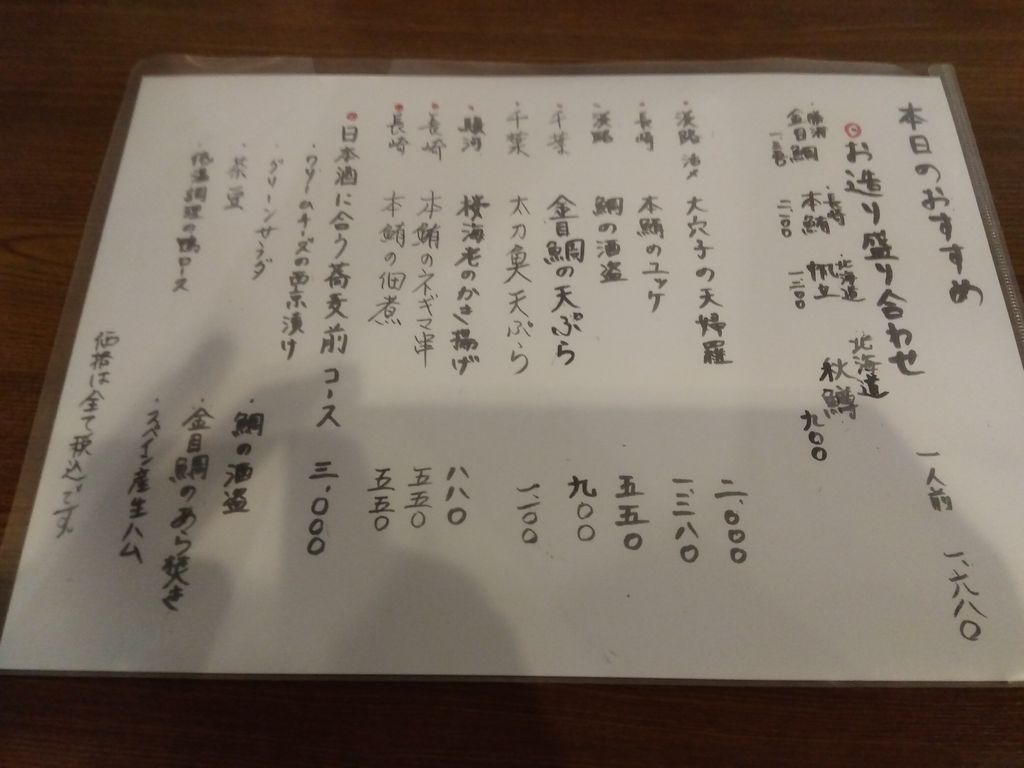 本日のおすすめ
お造り盛り合わせ 一人前 一、六八〇
勝浦 金目鯛
長崎 本鮪 二二〇〇
北海道 帆立 一三〇〇
北海道 秋鱒 九〇〇
淡路 活〆 大穴子の天婦羅 二、〇〇〇
長崎 本鮪のユッケ 一、三八〇
淡路 鯛の酒盗 五五〇
千葉 金目鯛の天ぷら 九〇〇
千葉 太刀魚天ぷら 一、二〇〇
駿河 桜海老のかき揚げ 八八〇
長崎 本鮪のネギマ串 五五〇
長崎 本鮪の佃煮 五五〇
日本酒に合う蕎麦前コース 三、〇〇〇
・クリームチーズの西京漬け
・グリーンサラダ
・茶豆
・低温調理の鴨ロース
・鯛の酒盗
・金目鯛のあら炊き
・スペイン産生ハム
価格は全て税込です